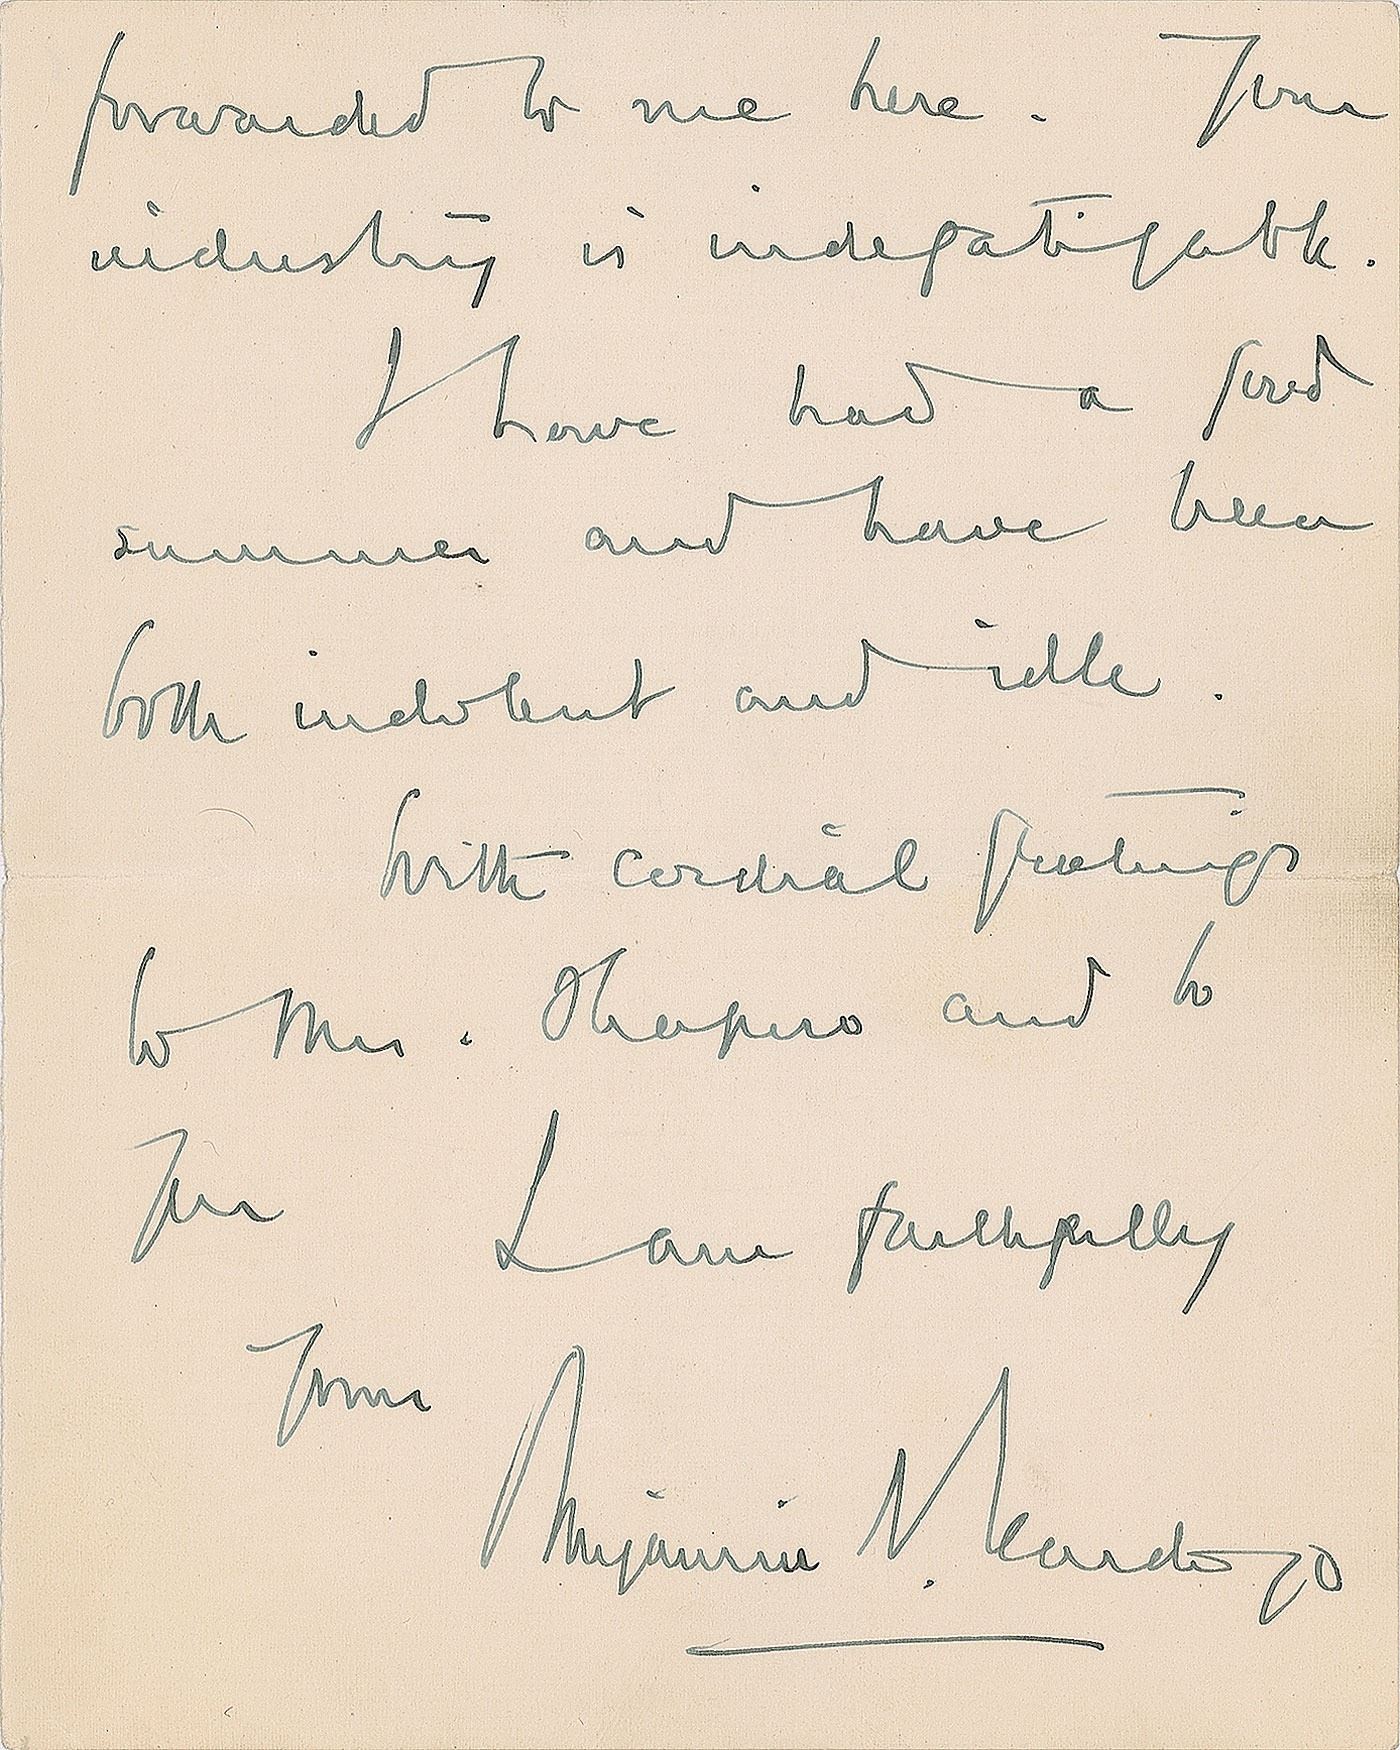 forwarded to me here. Your
industry is indefatigable.
I have had a good
summer and have been
both indolent and idle.
With cordial greetings
to Mrs. Shapiro and to
you I am faithfully
Yours
Benjamin N. Cardozo